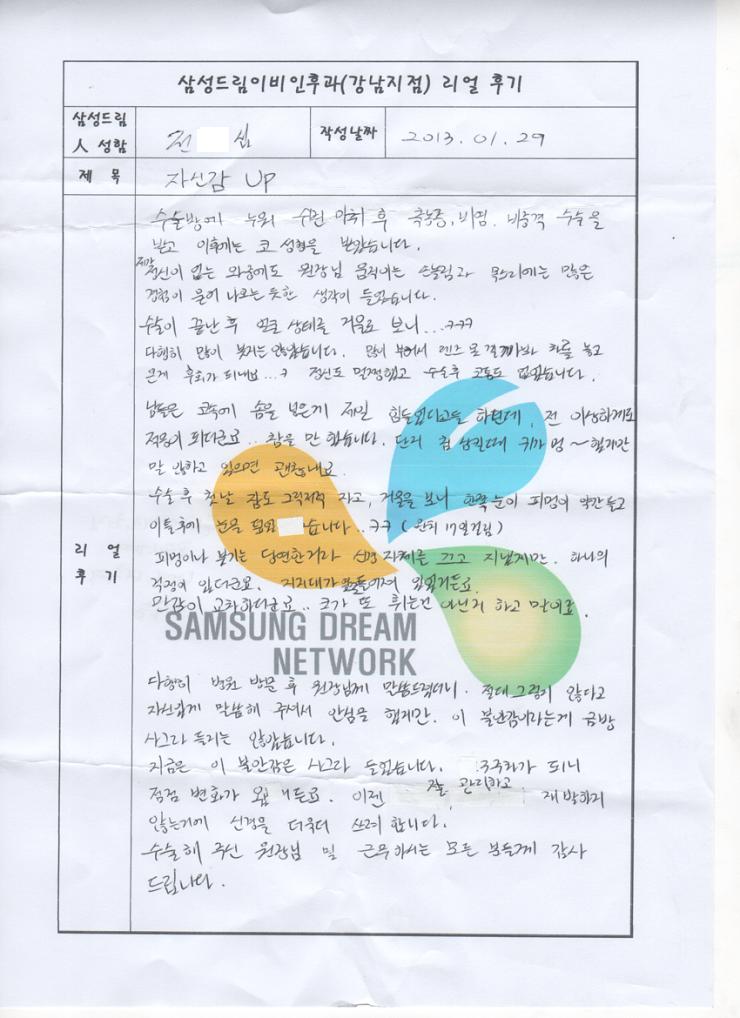 삼성드림이비인후과(강남지점) 리얼 후기
삼성드림
人 성함
전 심
작성날짜
2013. 01. 29
제 목
자신감 UP
리 얼
후 기
수술방에 누워 수면 마취 후 축농증, 비염, 비중격 수술을
받고 이후에는 코 성형을 받았습니다.
정신이 없는 와중에도 원장님 움직이는 손놀림과 목소리에는 많은
경험이 묻어 나오는듯한 생각이 들었습니다.
수술이 끝난 후 얼굴 상태를 거울로 보니...ㅋㅋㅋ
다행히 많이 붓지는 않았습니다. 많이 부어서 렌즈 못 차를 놓고
온게 후회가 되네요...ㅋ 정신도 멀쩡했고 수술후 고통도 없었습니다.
남들은 콧속에 솜을 넣은게 제일 힘들었다고들 하던데, 전 이상하게도
적응이 되더군요... 참을 만 했습니다. 단지 침 삼킬때 귀가 멍~ 했지만
말 안하고 있으면 괜찮네요.
수술 후 첫날 잠도 그럭저럭 자고, 거울을 보니 한쪽 눈이 피멍이 약간 들고
이틀후에 눈을 습니다..ㅋㅋ (완치 17일걸림)
피멍이나 붓기는 당연한거라 신경 자체를 끄고 지냈지만. 하나의
걱정이 있더군요. 지지대가 있었거든요.
만감이 교차하더군요.. 코가 또 휘는건 아닌지 하고 말이죠.
SAMSUNG DREAM
NETWORK
다행히 병원 방문 후 원장님께 말씀드렸더니. 절대 그렇지 않다고
자신있게 말씀해 주셔서 안심을 했지만. 이 불안감이라는게 금방
사그라 들지는 않았습니다.
지금은 이 불안감은 사그라 들었습니다. 3주차가 되니
점점 변화가 있거든요. 이젠 잘 관리하고 재발하지
않는거에 신경을 더욱더 쓰려 합니다.
수술해 주신 원장님 및 근무하시는 모든 분들께 감사
드립니다.